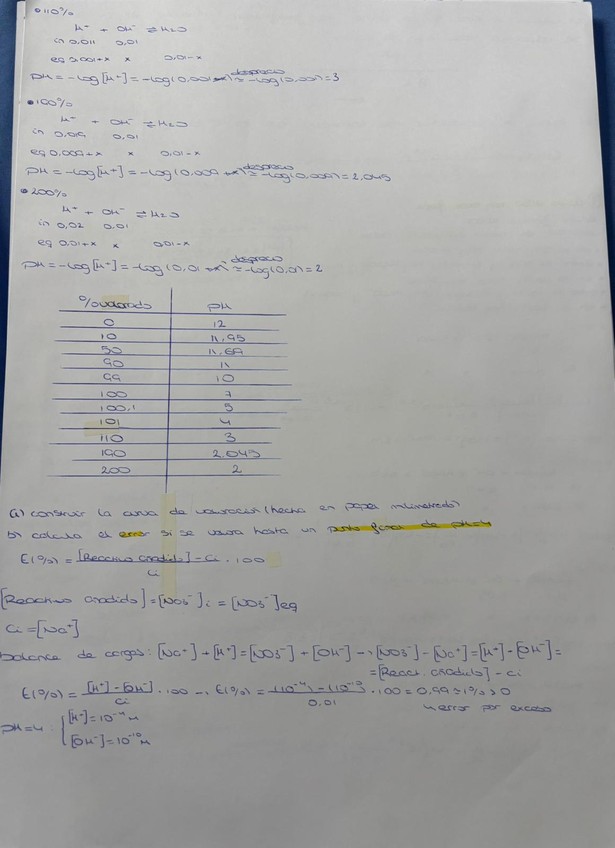 •110%
H⁺ + OH⁻ ⇌ H₂O
in 0,011 0,01
eq 0,001+x x 0,01-x
pH = -log[H⁺] = -log(0,001+x) ≈ desprecio -log(0,001) = 3
•190%
H⁺ + OH⁻ ⇌ H₂O
in 0,019 0,01
eq 0,009+x x 0,01-x
pH = -log[H⁺] = -log(0,009+x) ≈ desprecio -log(0,009) = 2,045
•200%
H⁺ + OH⁻ ⇌ H₂O
in 0,02 0,01
eq 0,01+x x 0,01-x
pH = -log[H⁺] = -log(0,01+x) ≈ desprecio -log(0,01) = 2
% valorado pH
0 12
10 11,95
50 11,69
90 11
99 10
100 7
100,1 5
101 4
110 3
190 2,045
200 2
a) construir la curva de valoración (hecha en papel milimetrado)
b) calcula el error si se valora hasta un punto final de pH=4
E(%) = [Reactivo añadido] - Ci / Ci · 100
[Reactivo añadido] = [NO₃⁻]i = [NO₃⁻]eq
Ci = [Na⁺]
balance de cargas: [Na⁺] + [H⁺] = [NO₃⁻] + [OH⁻] → [NO₃⁻] - [Na⁺] = [H⁺] - [OH⁻] =
= [React. añadido] - Ci
E(%) = [H⁺] - [OH⁻] / Ci · 100 → E(%) = (10⁻⁴) - (10⁻¹⁰) / 0,01 · 100 = 0,99 ≈ 1% > 0
↳ error por exceso
pH=4 { [H⁺] = 10⁻⁴ M
[OH⁻] = 10⁻¹⁰ M